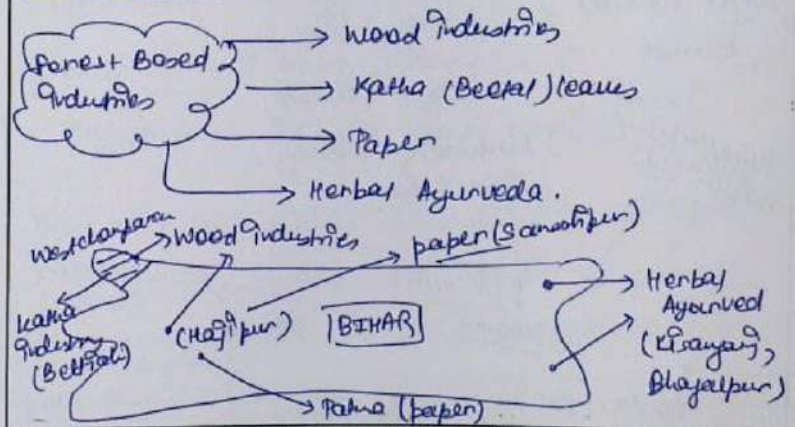 Forest Based
Industries
Wood Industries
Katha (Beetal) leaves
Paper
Herbal Ayurveda.
West champaran
Wood Industries
paper (Samastipur)
Katha
Industry
(Bettiah)
(Hajipur)
BIHAR
Herbal
Ayurved
(Kisanganj,
Bhagalpur)
Patna (paper)